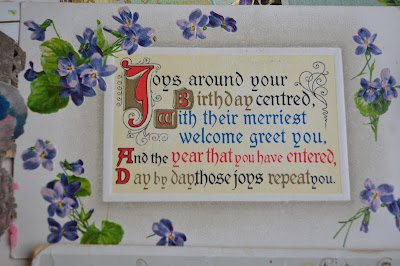 Joys around your
Birthday centred,
With their merriest
welcome greet you,
And the year that you have entered,
Day by day those joys repeat you.